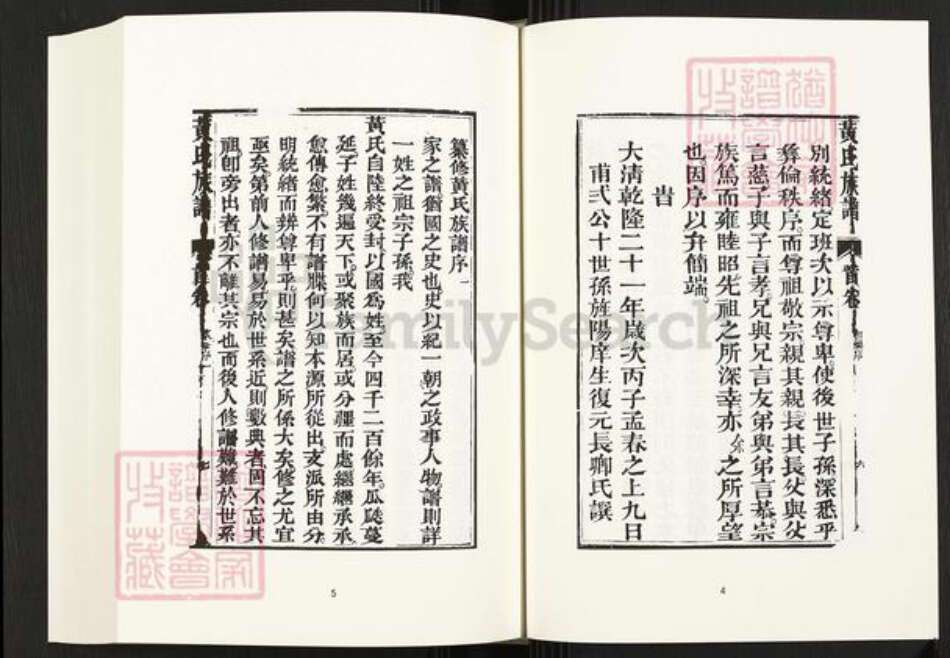 黃氏族譜
首卷
別統緒定班次以示尊卑。使後世子孫深悉乎
彝倫秩序。而尊祖敬宗親其親長其長父與父
言慈子與子言孝。兄與兄言友弟與弟言恭。宗
族篤而雍睦昭先祖之所深幸。亦余之所厚望
也。因序以弁簡端。
旹
大清乾隆二十一年歲次丙子孟春之上九日
甫弍公十世孫旌陽庠生復元長卿氏譔
4
纂修黃氏族譜序
家之譜猶國之史也。史以紀一朝之政事人物。譜則詳
一姓之祖宗子孫。我
黃氏自陸終受封以國為姓。至今四千二百餘年。瓜瓞蔓
延。子姓幾遍天下。或聚族而居。或分疆而處繼繼承承。
愈傳愈繁。不有譜牒何以知本源所從出。支派所由分
明統緒而辨尊卑乎。則甚矣譜之所係大矣修之尤宜
亟矣。第前人修譜易。易於世系近。則數典者固不忘其
祖。卽旁出者亦不離其宗也而後人修譜難。難於世系
黃氏族譜
首卷
5
FamilySearch